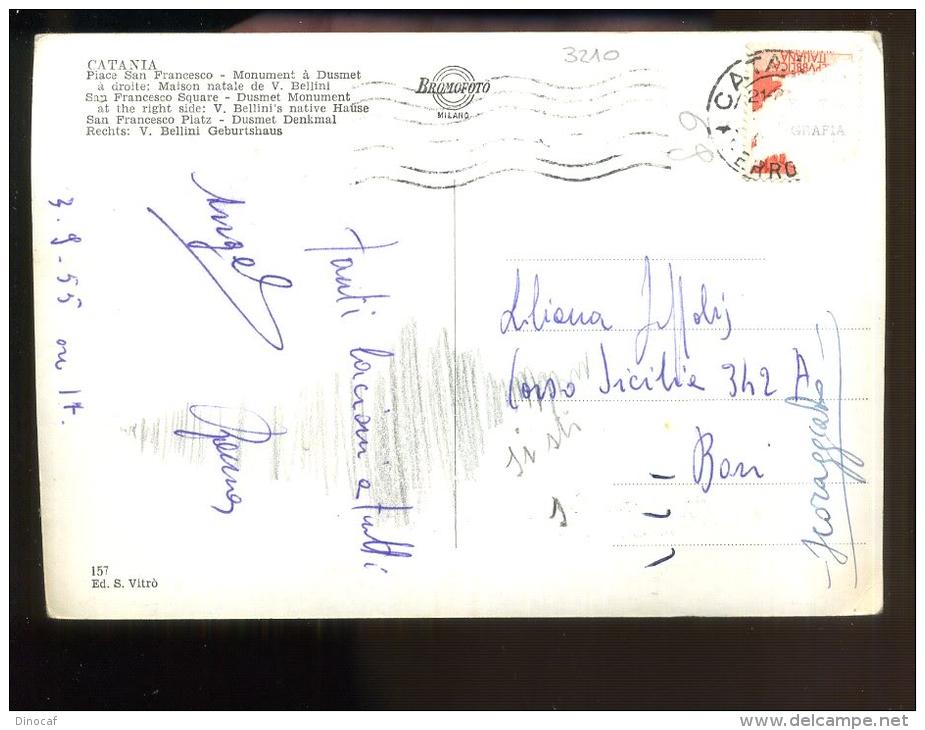 CATANIA
Piace San Francesco - Monument à Dusmet
à droite: Maison natale de V. Bellini
San Francesco Square - Dusmet Monument
at the right side: V. Bellini's native Hause
San Francesco Platz - Dusmet Denkmal
Rechts: V. Bellini Geburtshaus
BROMOFOTO
MILANO
3210
89
CATA
21-
FERRO
ITALIANA
GRAFIA
3.9-55 ore 17.
Angel
Tanti bacioni a tutti
Liliana
Corso Sicilia 342 A
Bari
157
Ed. S. Vitrò
Dinocaf
delcampe.net